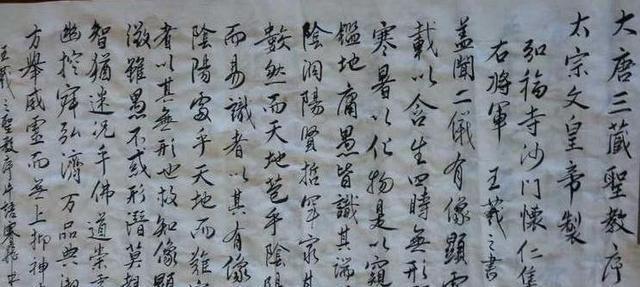 大唐三藏聖教序
太宗文皇帝製
弘福寺沙門懷仁集
右將軍王羲之書
蓋聞二儀有像顯
載以含生四時無形
寒暑以化物是以窺
鑑地庸愚皆識其端
陰洞陽賢哲罕窮其
數然而天地苞乎陰陽
而易識者以其有像
陰陽處乎天地而難窮
者以其無形也故知像顯
徵雖愚不惑形潛莫覩
智猶迷況乎佛道崇
幽控寂弘濟万品典御
方舉威靈而無上抑神
王羲之聖教序